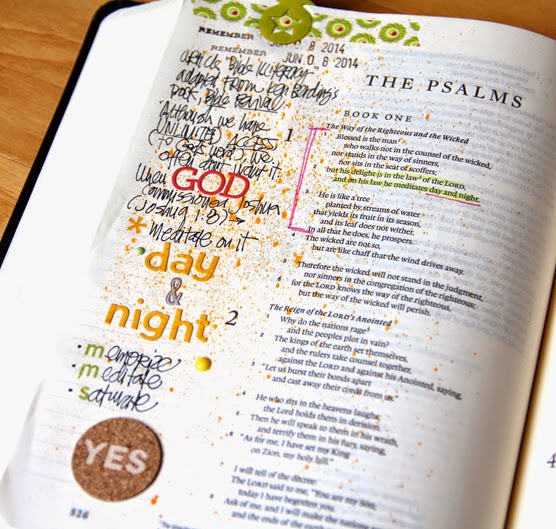 REMEMBER JUN 0 8 2014
REMEMBER JUN 0 8 2014
article "Bible Illiteracy"
adapted from Ken Berding's
book Bible Revival
"Although we have
UNLIMITED ACCESS
(to God's word) we
often don't want it.
When GOD
commissioned Joshua
(Joshua 1:8) →
* meditate on it
day
&
night
• memorize
• meditate
• saturate
YES
526
THE PSALMS
BOOK ONE
1 The Way of the Righteous and the Wicked
Blessed is the man
who walks not in the counsel of the wicked,
nor stands in the way of sinners,
nor sits in the seat of scoffers;
but his delight is in the law of the LORD,
and on his law he meditates day and night.
3 He is like a tree
planted by streams of water
that yields its fruit in its season,
and its leaf does not wither.
In all that he does, he prospers.
4 The wicked are not so,
but are like chaff that the wind drives away.
5 Therefore the wicked will not stand in the judgment,
nor sinners in the congregation of the righteous;
6 for the LORD knows the way of the righteous,
but the way of the wicked will perish.
2 The Reign of the LORD's Anointed
Why do the nations rage
and the peoples plot in vain?
2 The kings of the earth set themselves,
and the rulers take counsel together,
against the LORD and against his Anointed, saying,
3 "Let us burst their bonds apart
and cast away their cords from us."
4 He who sits in the heavens laughs;
the Lord holds them in derision.
5 Then he will speak to them in his wrath,
and terrify them in his fury, saying,
6 "As for me, I have set my King
on Zion, my holy hill."
7 I will tell of the decree:
The LORD said to me, "You are my Son;
today I have begotten you.
8 Ask of me, and I will make the nations
and the ends of the earth
4